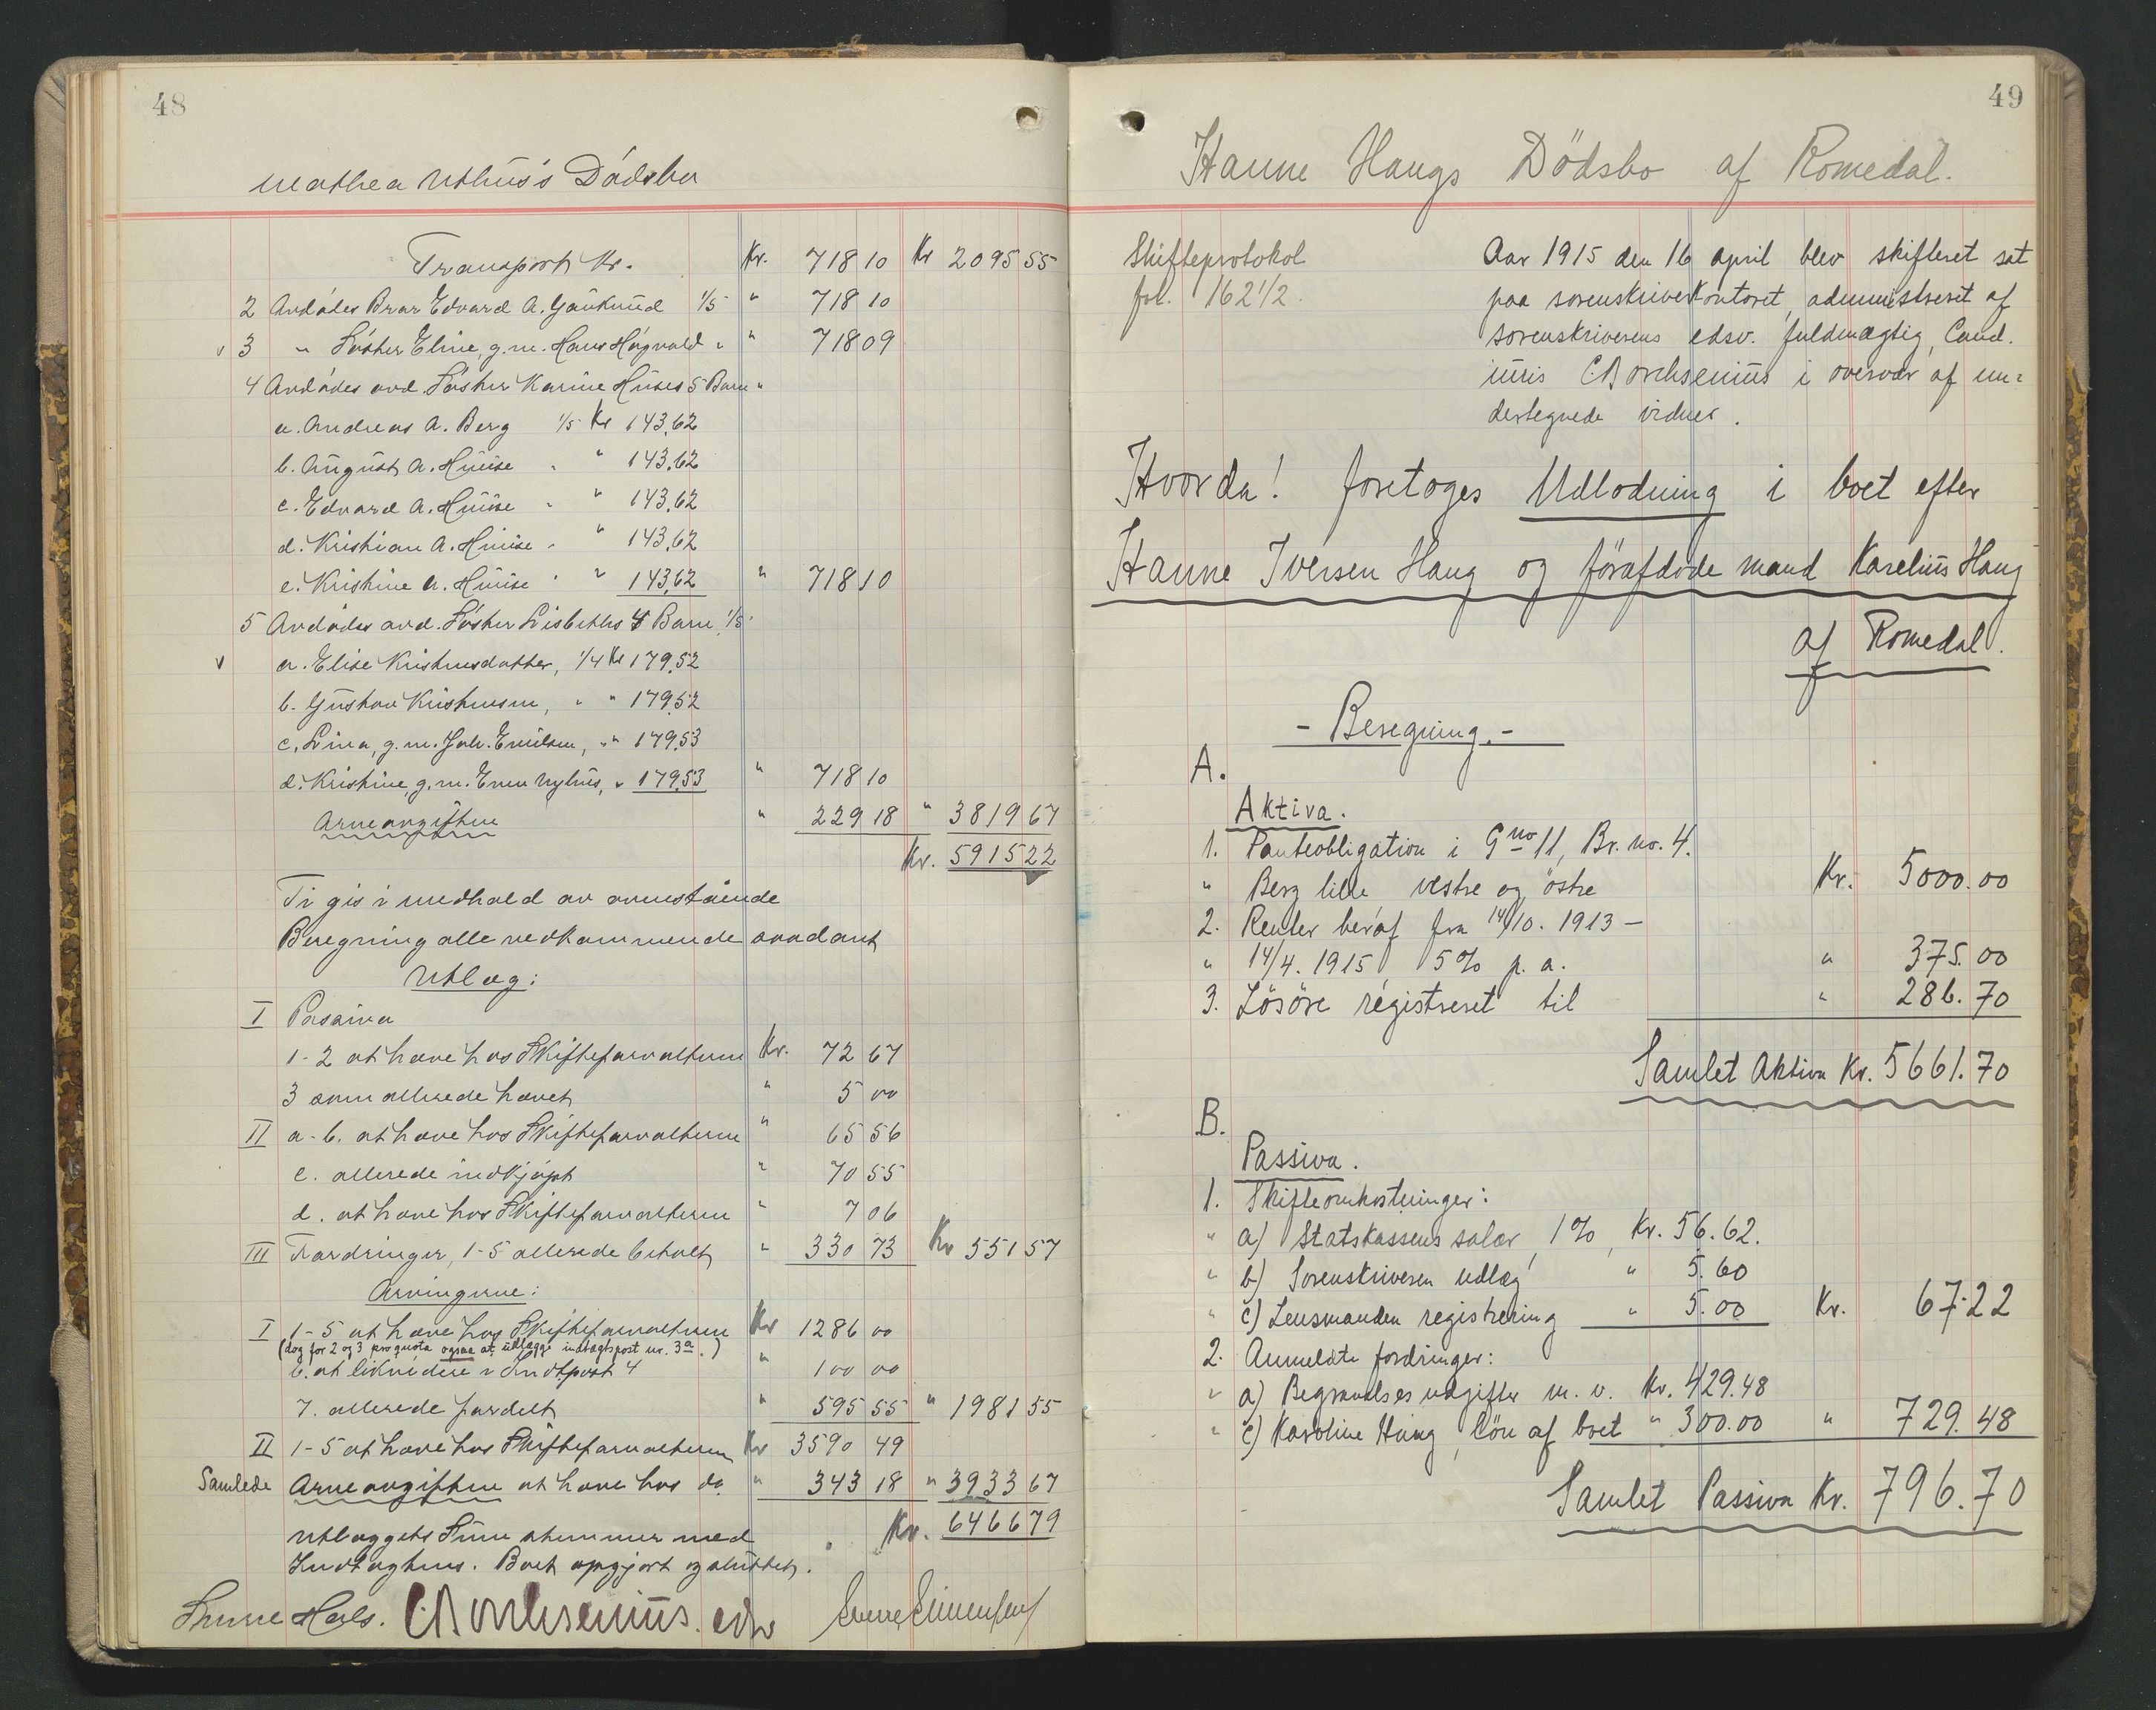 48
Mathea Uthus's Dödsbo
Transport Kr. Kr. 718 10 Kr 2095 55
2 Avdødes Bror Edvard A. Gaukrud 1/5 " 718 10
v 3 " Søster Eline, g.m. Hans Høgvold " " 718 09
4 Avdødes avd. Søster Karine Huses 5 Barn "
a. Andreas A. Berg 1/5 Kr 143,62
b. August A. Huuse " " 143,62
c. Edvard A. Huuse " " 143,62
d. Kristian A. Huuse " " 143,62
e. Kristine A. Huuse " " 143,62 " 718 10
5 Avdødes avd. Søster Lisbeths 4 Barn, 1/5
v a. Elise Kristensdatter, 1/4 Kr 179,52
b. Gustav Kristensen, " " 179,52
c. Lina, g.m. Joh. Emilsen, " " 179,53
d. Kristine, g.m. Even Nyhus, " 179,53 " 718 10
Arveavgiften " 229 18 " 3819 67
Kr. 5915 22
Ti gis i medhold av ovenstående
Beregning alle vedkommende saadant
Utlæg:
I Passiva
1-2 at hæve hos Skifteforvalteren Kr. 72 67
3 som allerede hævet " 5 00
II a-b. at hæve hos Skifteforvalteren " 65 56
c. allerede indkjøpt " 70 55
d. at hæve hos Skifteforvalteren " 7 06
III Fordringer, 1-5 allerede betalt " 330 73 Kr 551 57
Arvingerne:
I 1-5 at hæve hos Skifteforvalteren Kr 1286 00
(dog for 2 og 3 pro quota ogsaa at utlægge indtægtspost nr. 3a.)
6. at likvidere i Indtpost 4 " 100 00
7. allerede fordelt " 595 55 " 1981 55
II 1-5 at hæve hos Skifteforvalteren Kr 3590 49
Samlede Arveavgiften at hæve hos do. " 343 18 " 3933 67
Kr. 6466 79
Utlæggets Sum stemmer med
Indtægtens. Boet opgjort og sluttet.
C. Borchsenius. edsv
49
Hanne Haugs Dödsbo af Romedal.
Skifteprotokol
fol. 162 1/2.
Aar 1915 den 16 april blev skifteret sat
paa sorenskriverkontoret, administreret af
sorenskriverens edsv. fuldmægtig, Cand.
juris C Borchsenius i overvær af un=
dertegnede vidner.
Hvorda! foretoges Udlodning i boet efter
Hanne Iversen Haug og förafdöde mand Karelius Haug
af Romedal.
- Beregning. -
A.
Aktiva.
1. Panteobligation i Gno 11, Br. no. 4.
" Berg lille vestre og östre Kr. 5000.00
2. Renter heraf fra 14/10. 1913 -
" 14/4. 1915 5% p. a. " 375.00
3. Lösöre registreret til " 286.70
Samlet Aktiva Kr. 5661.70
B.
Passiva.
1. Skifteomkostninger:
" a) Statskassens salær, 1%, Kr. 56.62.
" b) Sorenskriveren udlæg " 5.60
" c) Lensmanden registrering " 5.00 Kr. 67.22
2. Anmeldte fordringer:
" a) Begravelses udgifter m. v. Kr. 429.48
" c) Karoline Haug, lön af boet " 300.00 " 729.48
Samlet Passiva Kr. 796.70